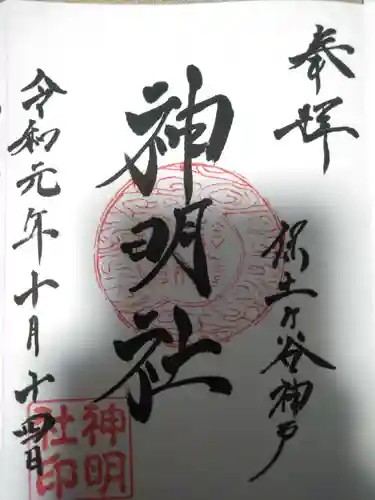 奉拝
保土ヶ谷神戸
神明社
令和元年十月十四日
神明
社印